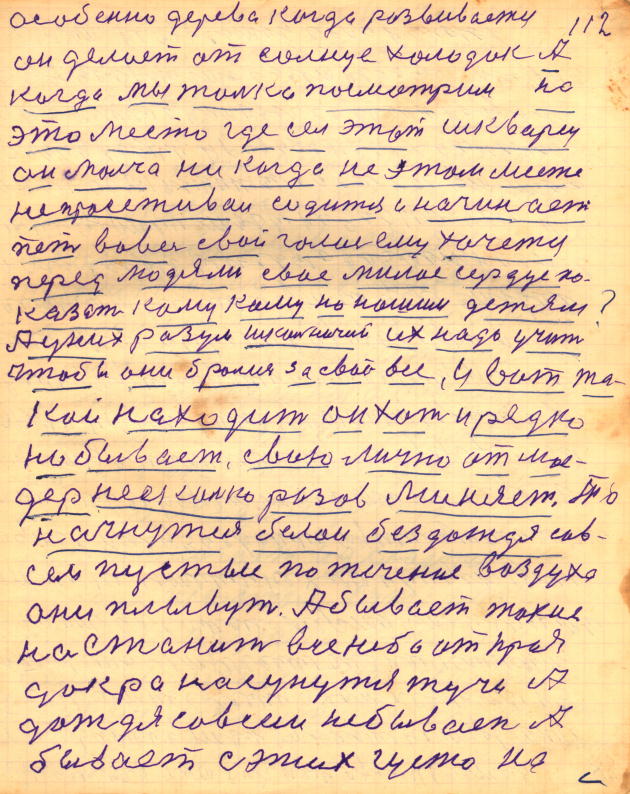 особенно дерева когда развивает 112
он делает от солнце холодок А
когда мы толка посмотрим на
это место где сел этот шкварец
он молча ни когда не этом месте
садится и начинает
пет вовсе свой голос ему хочется
перед людями свое милое сердце по-
казат кому кому но нашим детям?
А у них разум их надо учит
чтобы они бралися за свое все, И вот та-
кой находит он хот и рядко
но бывает, свою лично от мо-
дер несколко разов миняет. То
начнутся белои без дождя сов-
сем пустые по течение воздуха
они плывут. А бывает такие
настанит все неба от края
докра насунутся тучи А
дождя совсем небывает А
бывает с этих густо на